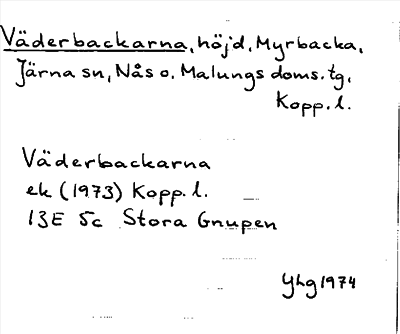 Väderbackarna, höjd, Myrbacka,
Järna sn, Nås o. Malungs doms. tg,
Kopp. l.
Väderbackarna
ek (1973) Kopp. l.
13E 5c Stora Gnupen
Yhg 1974